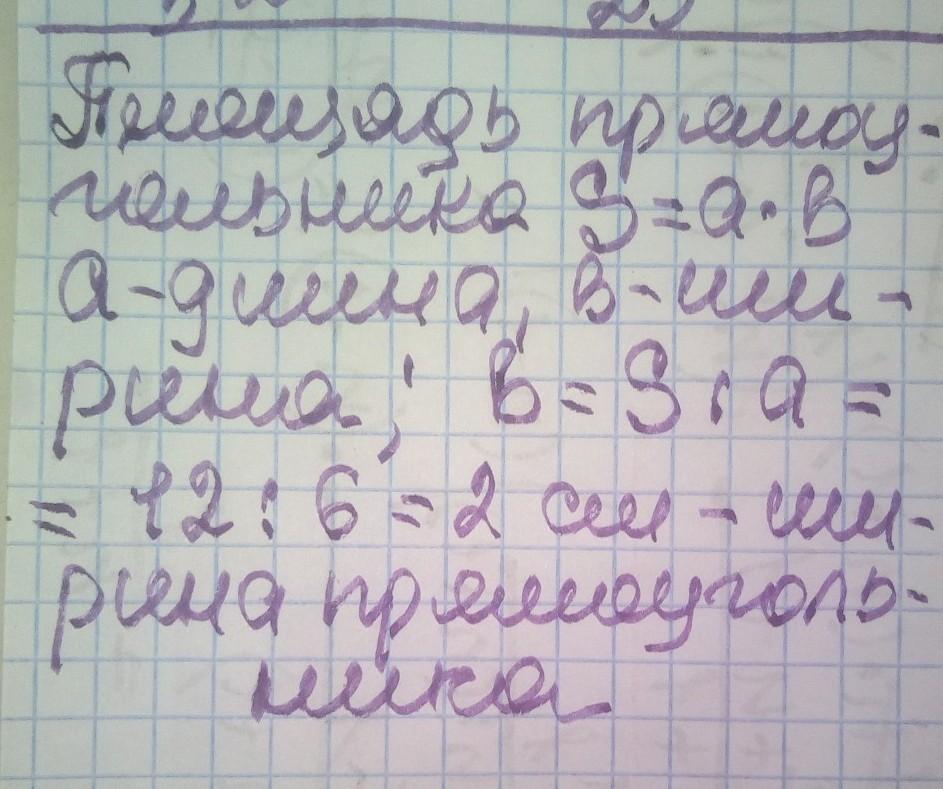 Площадь прямоу-
гольника S=а·в
а-длина, в-ши-
рина; в=S:а=
= 12:6=2 см - ши-
рина прямоуголь-
ника